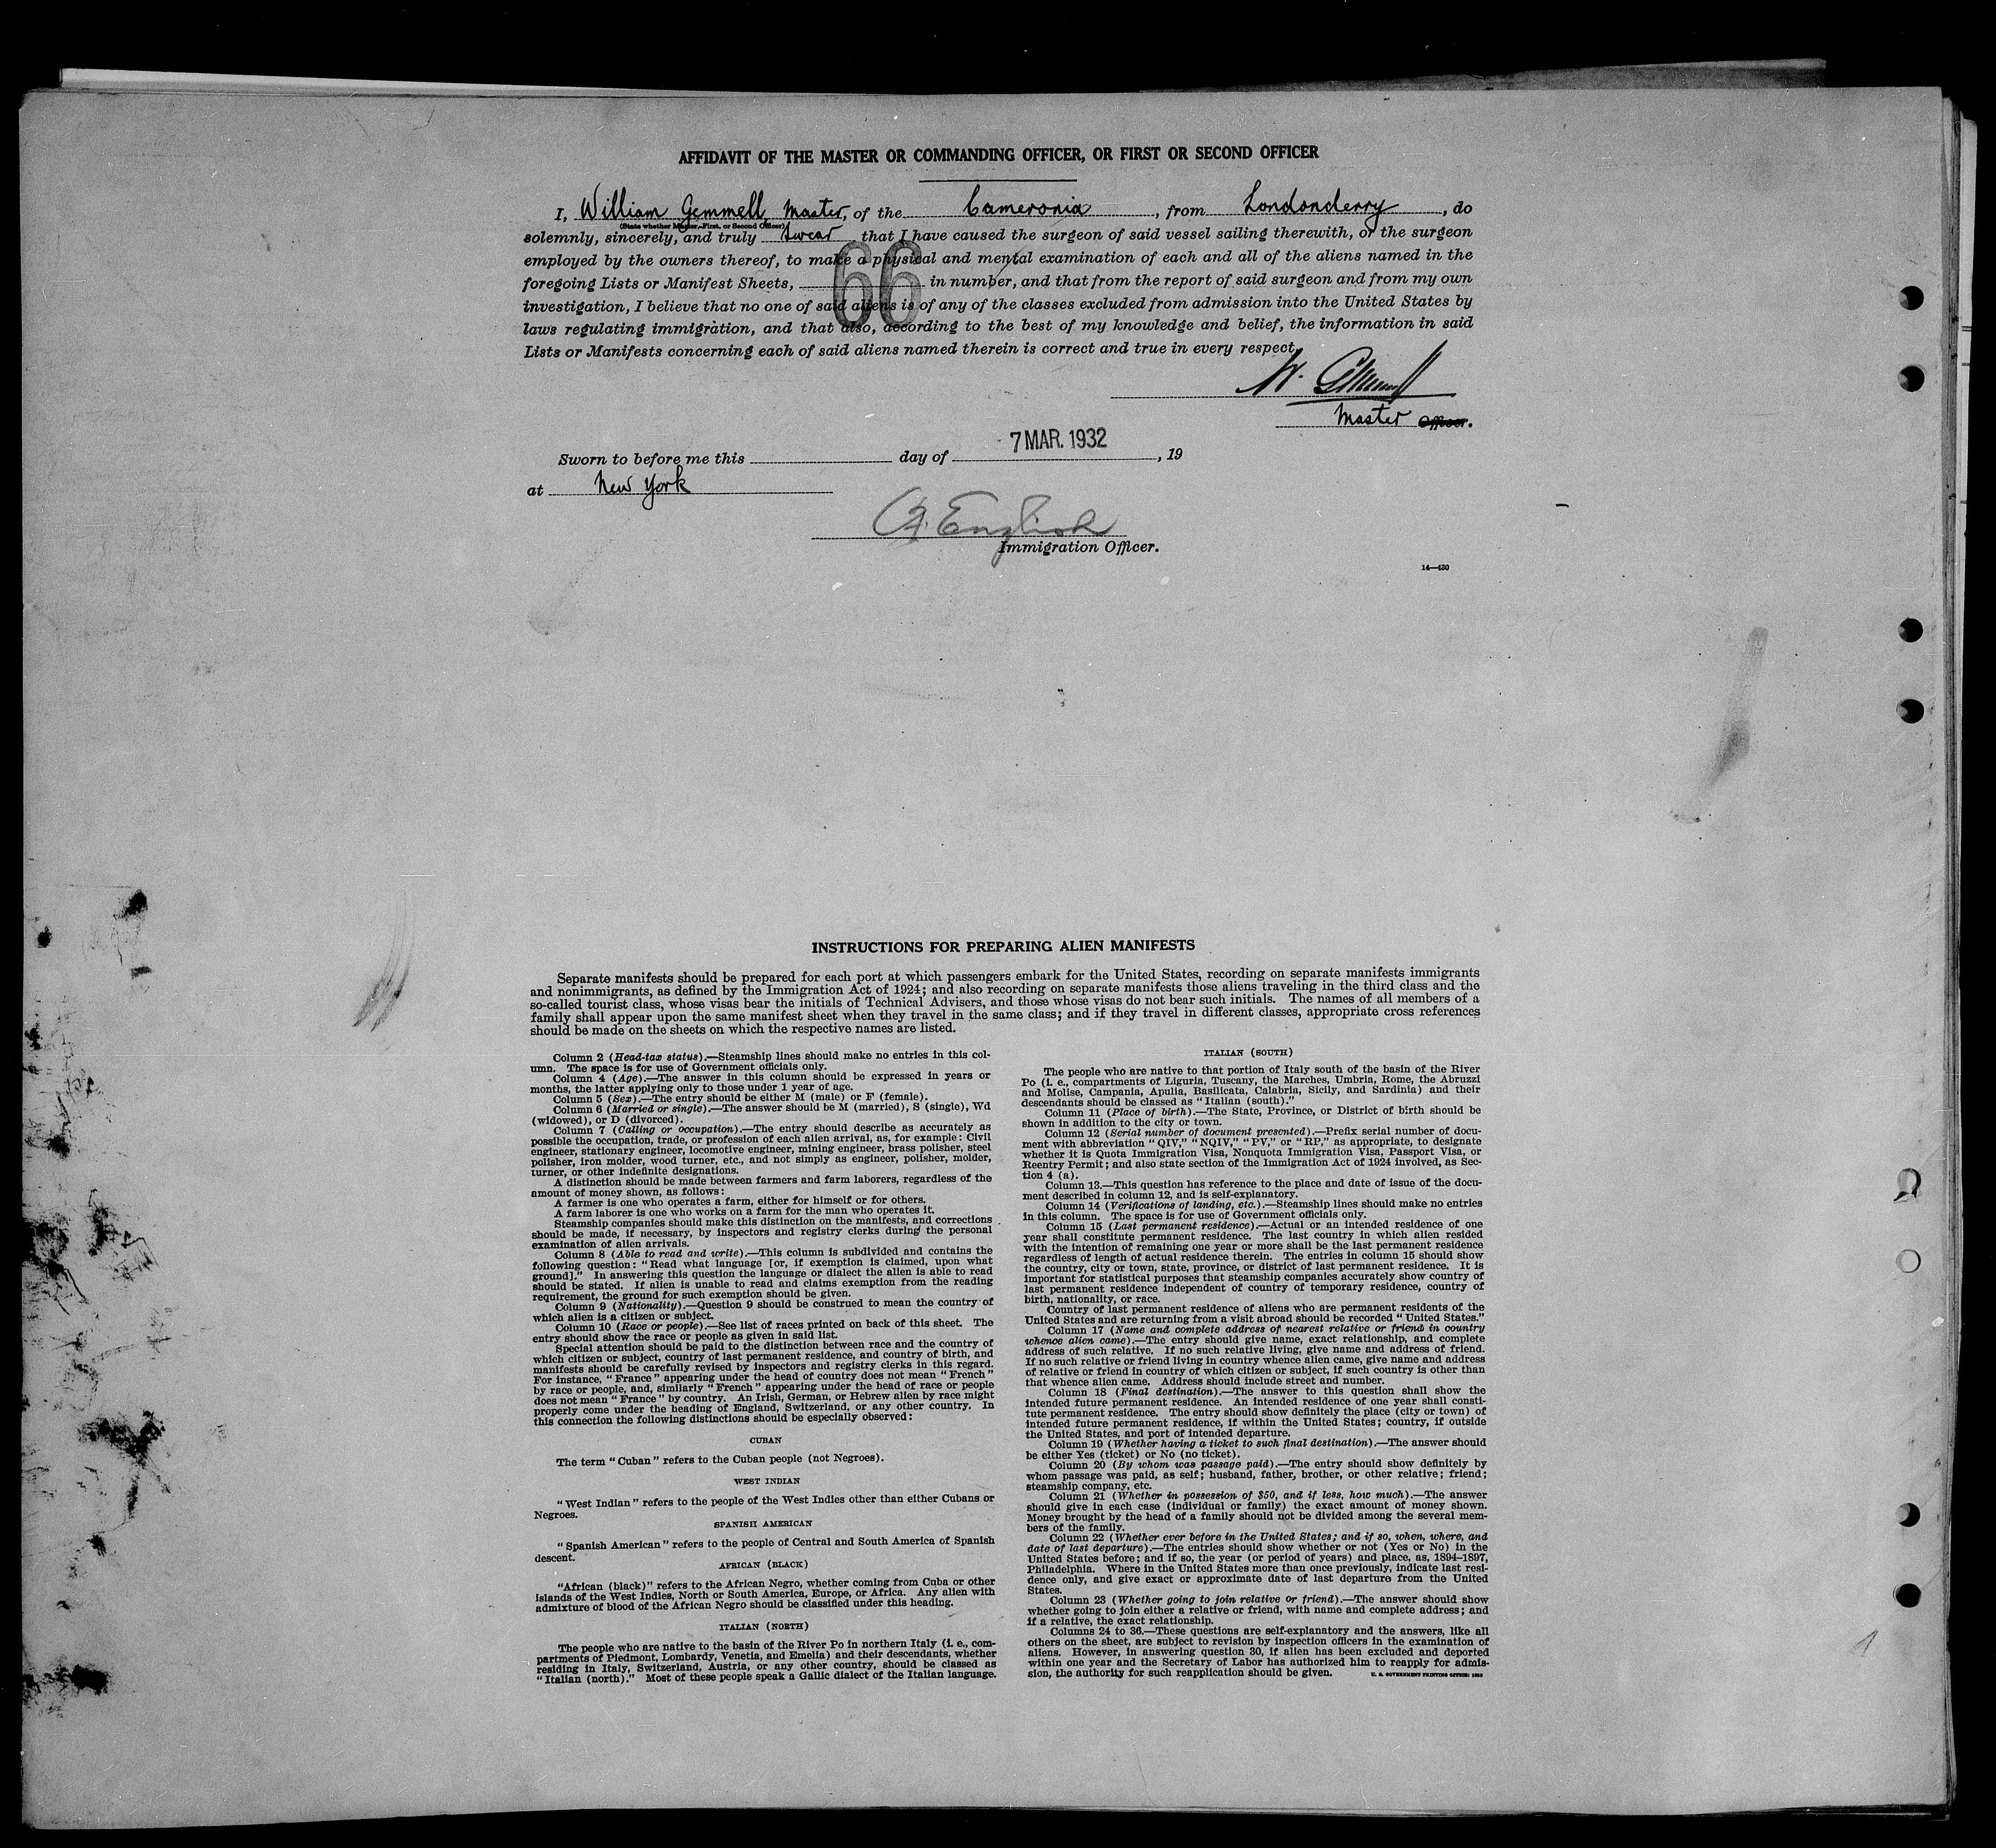 AFFIDAVIT OF THE MASTER OR COMMANDING OFFICER, OR FIRST OR SECOND OFFICER
I, William Gemmell, Master, of the Cameronia, from Londonderry, do
(State whether Master, First, or Second Officer)
solemnly, sincerely, and truly swear that I have caused the surgeon of said vessel sailing therewith, or the surgeon
employed by the owners thereof, to make a physical and mental examination of each and all of the aliens named in the
foregoing Lists or Manifest Sheets, 66 in number, and that from the report of said surgeon and from my own
investigation, I believe that no one of said aliens is of any of the classes excluded from admission into the United States by
laws regulating immigration, and that also, according to the best of my knowledge and belief, the information in said
Lists or Manifests concerning each of said aliens named therein is correct and true in every respect.
W. Gemmell
Master Officer.
Sworn to before me this day of 7 MAR. 1932, 19
at New York
English
Immigration Officer.
14—420
INSTRUCTIONS FOR PREPARING ALIEN MANIFESTS
Separate manifests should be prepared for each port at which passengers embark for the United States, recording on separate manifests immigrants
and nonimmigrants, as defined by the Immigration Act of 1924; and also recording on separate manifests those aliens traveling in the third class and the
so-called tourist class, whose visas bear the initials of Technical Advisers, and those whose visas do not bear such initials. The names of all members of a
family shall appear upon the same manifest sheet when they travel in the same class; and if they travel in different classes, appropriate cross references
should be made on the sheets on which the respective names are listed.
Column 2 (Head-tax status).—Steamship lines should make no entries in this col-
umn. The space is for use of Government officials only.
Column 4 (Age).—The answer in this column should be expressed in years or
months, the latter applying only to those under 1 year of age.
Column 5 (Sex).—The entry should be either M (male) or F (female).
Column 6 (Married or single).—The answer should be M (married), S (single), Wd
(widowed), or D (divorced).
Column 7 (Calling or occupation).—The entry should describe as accurately as
possible the occupation, trade, or profession of each alien arrival, as, for example: Civil
engineer, stationary engineer, locomotive engineer, mining engineer, brass polisher, steel
polisher, iron molder, wood turner, etc., and not simply as engineer, polisher, molder,
turner, or other indefinite designations.
A distinction should be made between farmers and farm laborers, regardless of the
amount of money shown, as follows:
A farmer is one who operates a farm, either for himself or for others.
A farm laborer is one who works on a farm for the man who operates it.
Steamship companies should make this distinction on the manifests, and corrections
should be made, if necessary, by inspectors and registry clerks during the personal
examination of alien arrivals.
Column 8 (Able to read and write).—This column is subdivided and contains the
following question: "Read what language [or, if exemption is claimed, upon what
ground]." In answering this question the language or dialect the alien is able to read
should be stated. If alien is unable to read and claims exemption from the reading
requirement, the ground for such exemption should be given.
Column 9 (Nationality).—Question 9 should be construed to mean the country of
which alien is a citizen or subject.
Column 10 (Race or people).—See list of races printed on back of this sheet. The
entry should show the race or people as given in said list.
Special attention should be paid to the distinction between race and the country of
which citizen or subject, country of last permanent residence, and country of birth, and
manifests should be carefully revised by inspectors and registry clerks in this regard.
For instance, "France" appearing under the head of country does not mean "French"
by race or people, and, similarly "French" appearing under the head of race or people
does not mean "France" by country. An Irish, German, or Hebrew alien by race might
properly come under the heading of England, Switzerland, or any other country. In
this connection the following distinctions should be especially observed:
CUBAN
The term "Cuban" refers to the Cuban people (not Negroes).
WEST INDIAN
"West Indian" refers to the people of the West Indies other than either Cubans or
Negroes.
SPANISH AMERICAN
"Spanish American" refers to the people of Central and South America of Spanish
descent.
AFRICAN (BLACK)
"African (black)" refers to the African Negro, whether coming from Cuba or other
islands of the West Indies, North or South America, Europe, or Africa. Any alien with
admixture of blood of the African Negro should be classified under this heading.
ITALIAN (NORTH)
The people who are native to the basin of the River Po in northern Italy (i. e., com-
partments of Piedmont, Lombardy, Venetia, and Emelia) and their descendants, whether
residing in Italy, Switzerland, Austria, or any other country, should be classed as
"Italian (north)." Most of these people speak a Gallic dialect of the Italian language.
ITALIAN (SOUTH)
The people who are native to that portion of Italy south of the basin of the River
Po (i. e., compartments of Liguria, Tuscany, the Marches, Umbria, Rome, the Abruzzi
and Molise, Campania, Apulia, Basilicata, Calabria, Sicily, and Sardinia) and their
descendants should be classed as "Italian (south)."
Column 11 (Place of birth).—The State, Province, or District of birth should be
shown in addition to the city or town.
Column 12 (Serial number of document presented).—Prefix serial number of docu-
ment with abbreviation "QIV," "NQIV," "PV," or "RP," as appropriate, to designate
whether it is Quota Immigration Visa, Nonquota Immigration Visa, Passport Visa, or
Reentry Permit; and also state section of the Immigration Act of 1924 involved, as Sec-
tion 4 (a).
Column 13.—This question has reference to the place and date of issue of the docu-
ment described in column 12, and is self-explanatory.
Column 14 (Verifications of landing, etc.).—Steamship lines should make no entries
in this column. The space is for use of Government officials only.
Column 15 (Last permanent residence).—Actual or an intended residence of one
year shall constitute permanent residence. The last country in which alien resided
with the intention of remaining one year or more shall be the last permanent residence
regardless of length of actual residence therein. The entries in column 15 should show
the country, city or town, state, province, or district of last permanent residence. It is
important for statistical purposes that steamship companies accurately show country of
last permanent residence independent of country of temporary residence, country of
birth, nationality, or race.
Country of last permanent residence of aliens who are permanent residents of the
United States and are returning from a visit abroad should be recorded "United States."
Column 17 (Name and complete address of nearest relative or friend in country
whence alien came).—The entry should give name, exact relationship, and complete
address of such relative. If no such relative living, give name and address of friend.
If no such relative or friend living in country whence alien came, give name and address
of relative or friend in country of which citizen or subject, if such country is other than
that whence alien came. Address should include street and number.
Column 18 (Final destination).—The answer to this question shall show the
intended future permanent residence. An intended residence of one year shall consti-
tute permanent residence. The entry should show definitely the place (city or town) of
intended future permanent residence, if within the United States; country, if outside
the United States, and port of intended departure.
Column 19 (Whether having a ticket to such final destination).—The answer should
be either Yes (ticket) or No (no ticket).
Column 20 (By whom was passage paid).—The entry should show definitely by
whom passage was paid, as self; husband, father, brother, or other relative; friend;
steamship company, etc.
Column 21 (Whether in possession of $50, and if less, how much).—The answer
should give in each case (individual or family) the exact amount of money shown.
Money brought by the head of a family should not be divided among the several mem-
bers of the family.
Column 22 (Whether ever before in the United States; and if so, when, where, and
date of last departure).—The entries should show whether or not (Yes or No) in the
United States before; and if so, the year (or period of years) and place, as, 1894–1897,
Philadelphia. Where in the United States more than once previously, indicate last resi-
dence only, and give exact or approximate date of last departure from the United
States.
Column 23 (Whether going to join relative or friend).—The answer should show
whether going to join either a relative or friend, with name and complete address; and
if a relative, the exact relationship.
Columns 24 to 36.—These questions are self-explanatory and the answers, like all
others on the sheet, are subject to revision by inspection officers in the examination of
aliens. However, in answering question 30, if alien has been excluded and deported
within one year and the Secretary of Labor has authorized him to reapply for admis-
sion, the authority for such reapplication should be given.
U. S. GOVERNMENT PRINTING OFFICE:
1